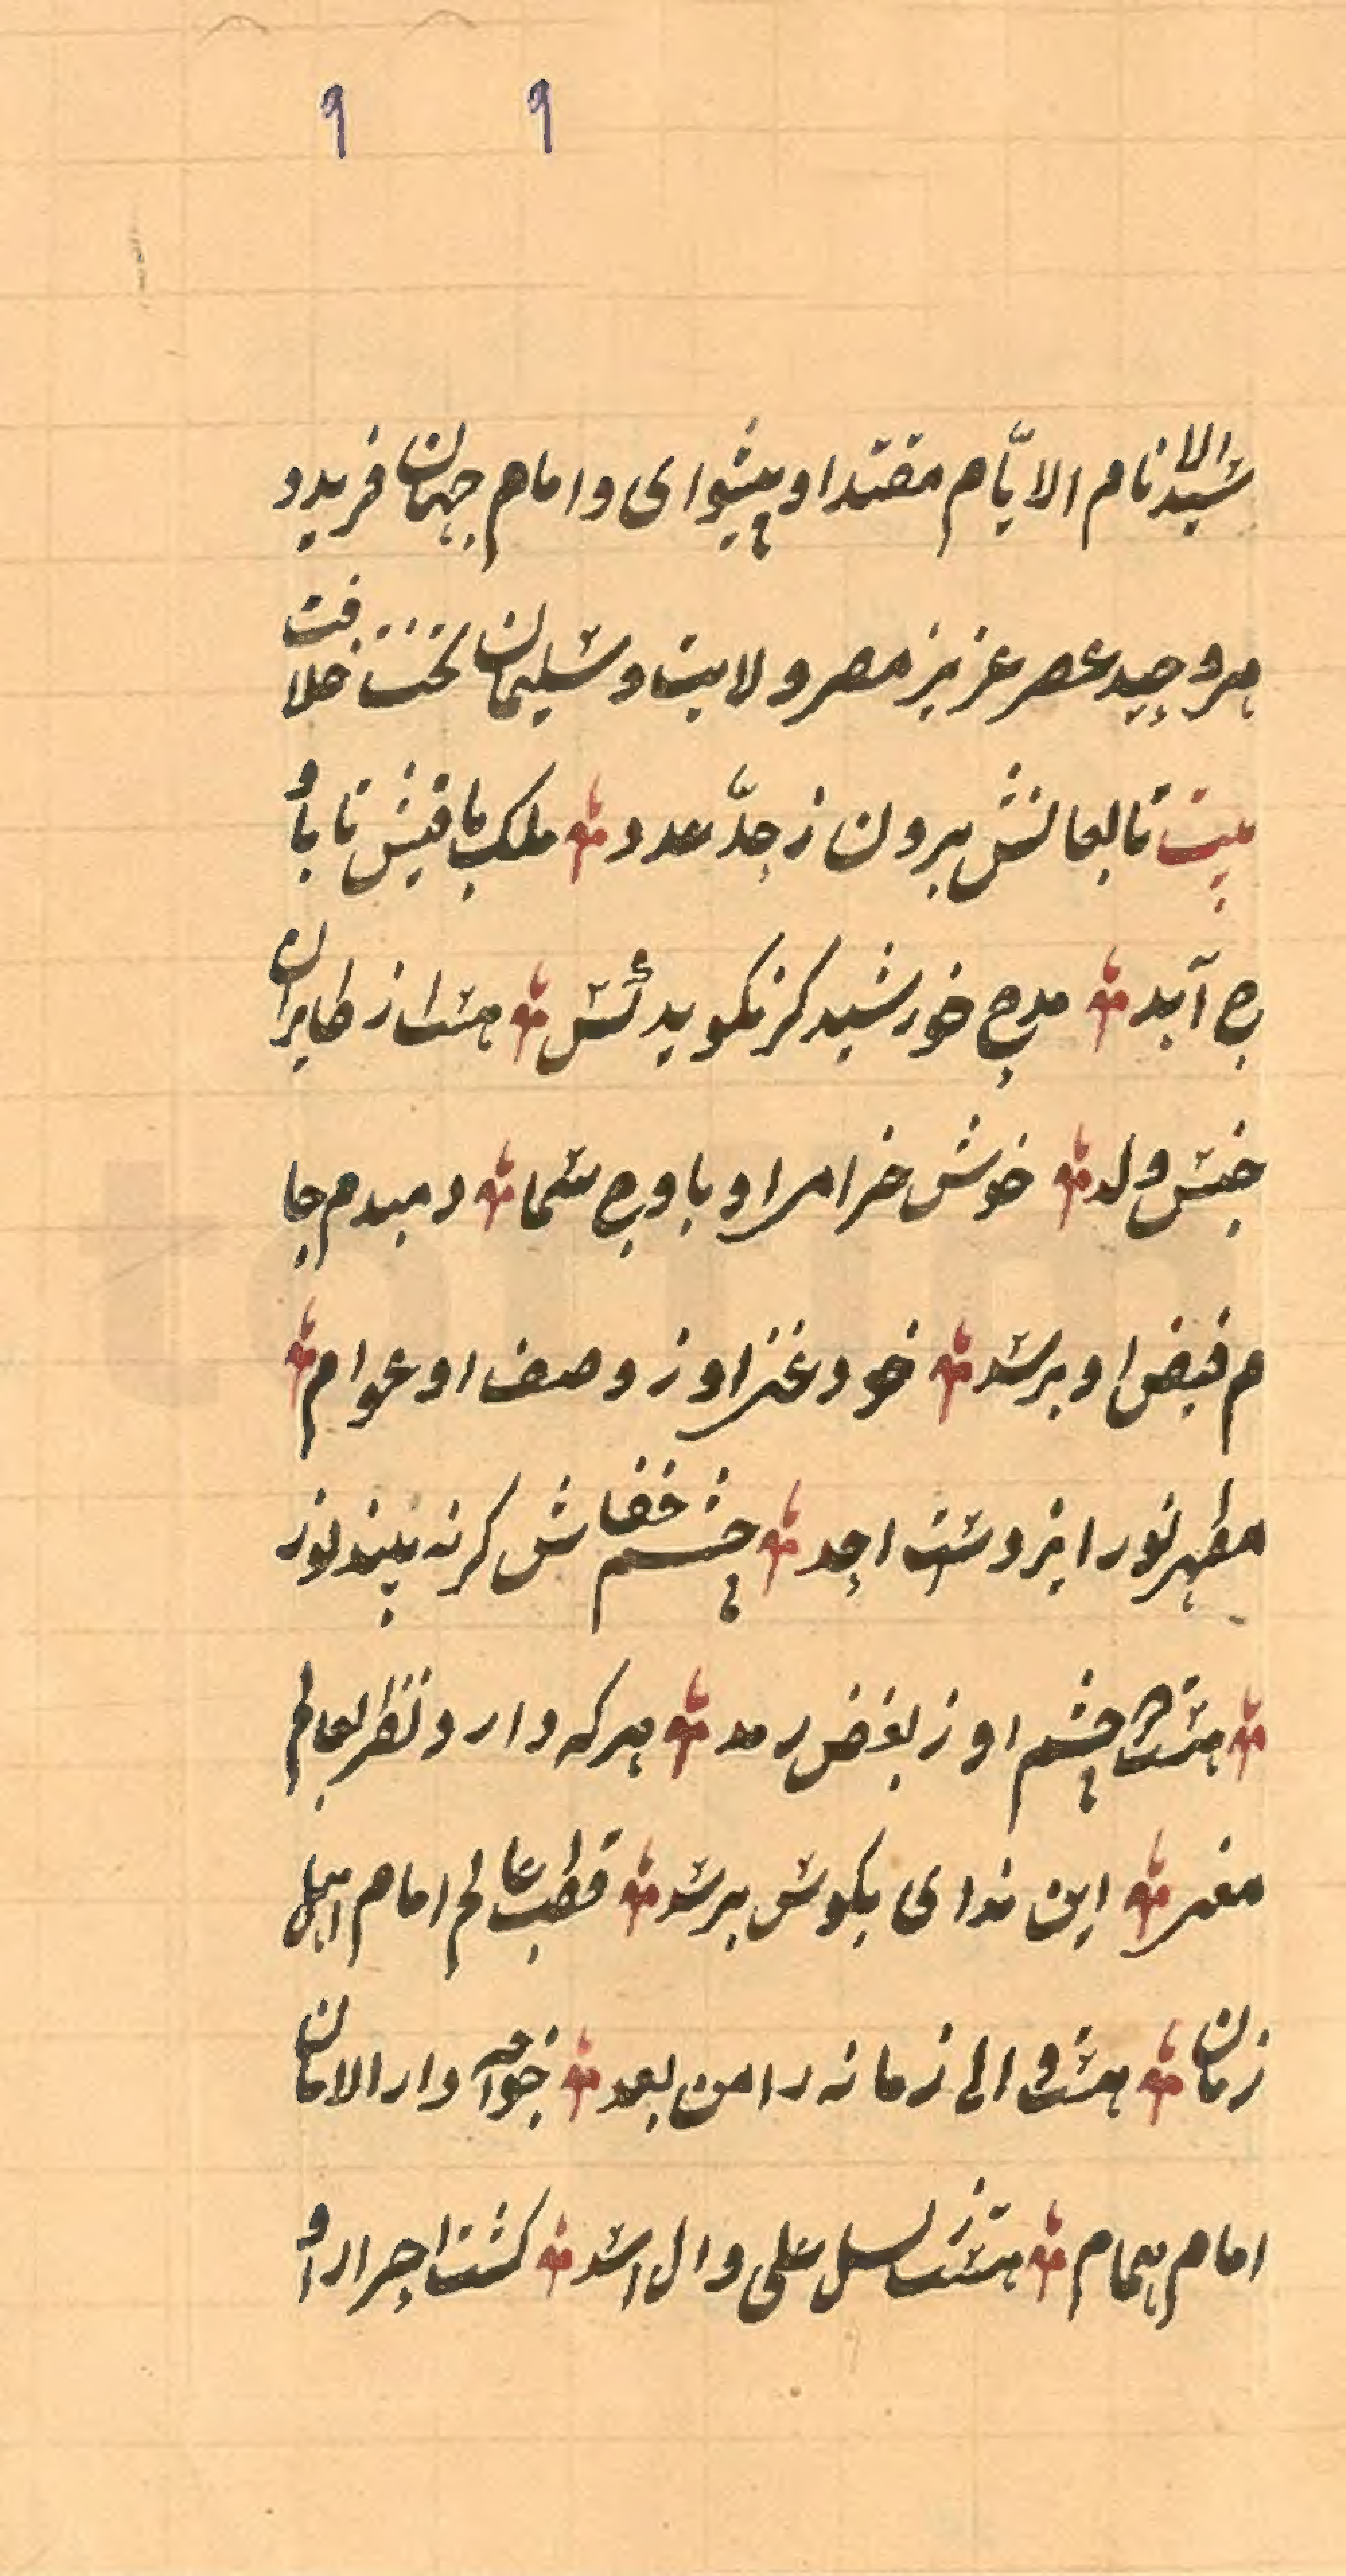 ۹ ۹
سید الانام الایّام مقتدا و پیشوای و امام جهان فرید و
هر وحید عصر عزیز مصر ولایت و سلیمان تخت خلافت
بیت تابعانش برون ز حدّ عدد ملک بافیش تا باو
ج آید مدح خورشید کر نکوید کس هست از طایران
جنس ولد خوش خرامد او باوج سما دمبدم جا
م فیض او برسد خود غنی او ز وصف او عوام
مظهر نور ایزدست احد چشم خفاش کر نه بیند نور
هست چشم او ز بغض رمد هر که دارد نظر بعالم
مغیر این ندای بکوش برسد قطب عالم امام اهل
زمان هست والی زمانه را من بعد خواجه دار الامان
امام همام هست از نسل علی وال اسد کشت احرار او